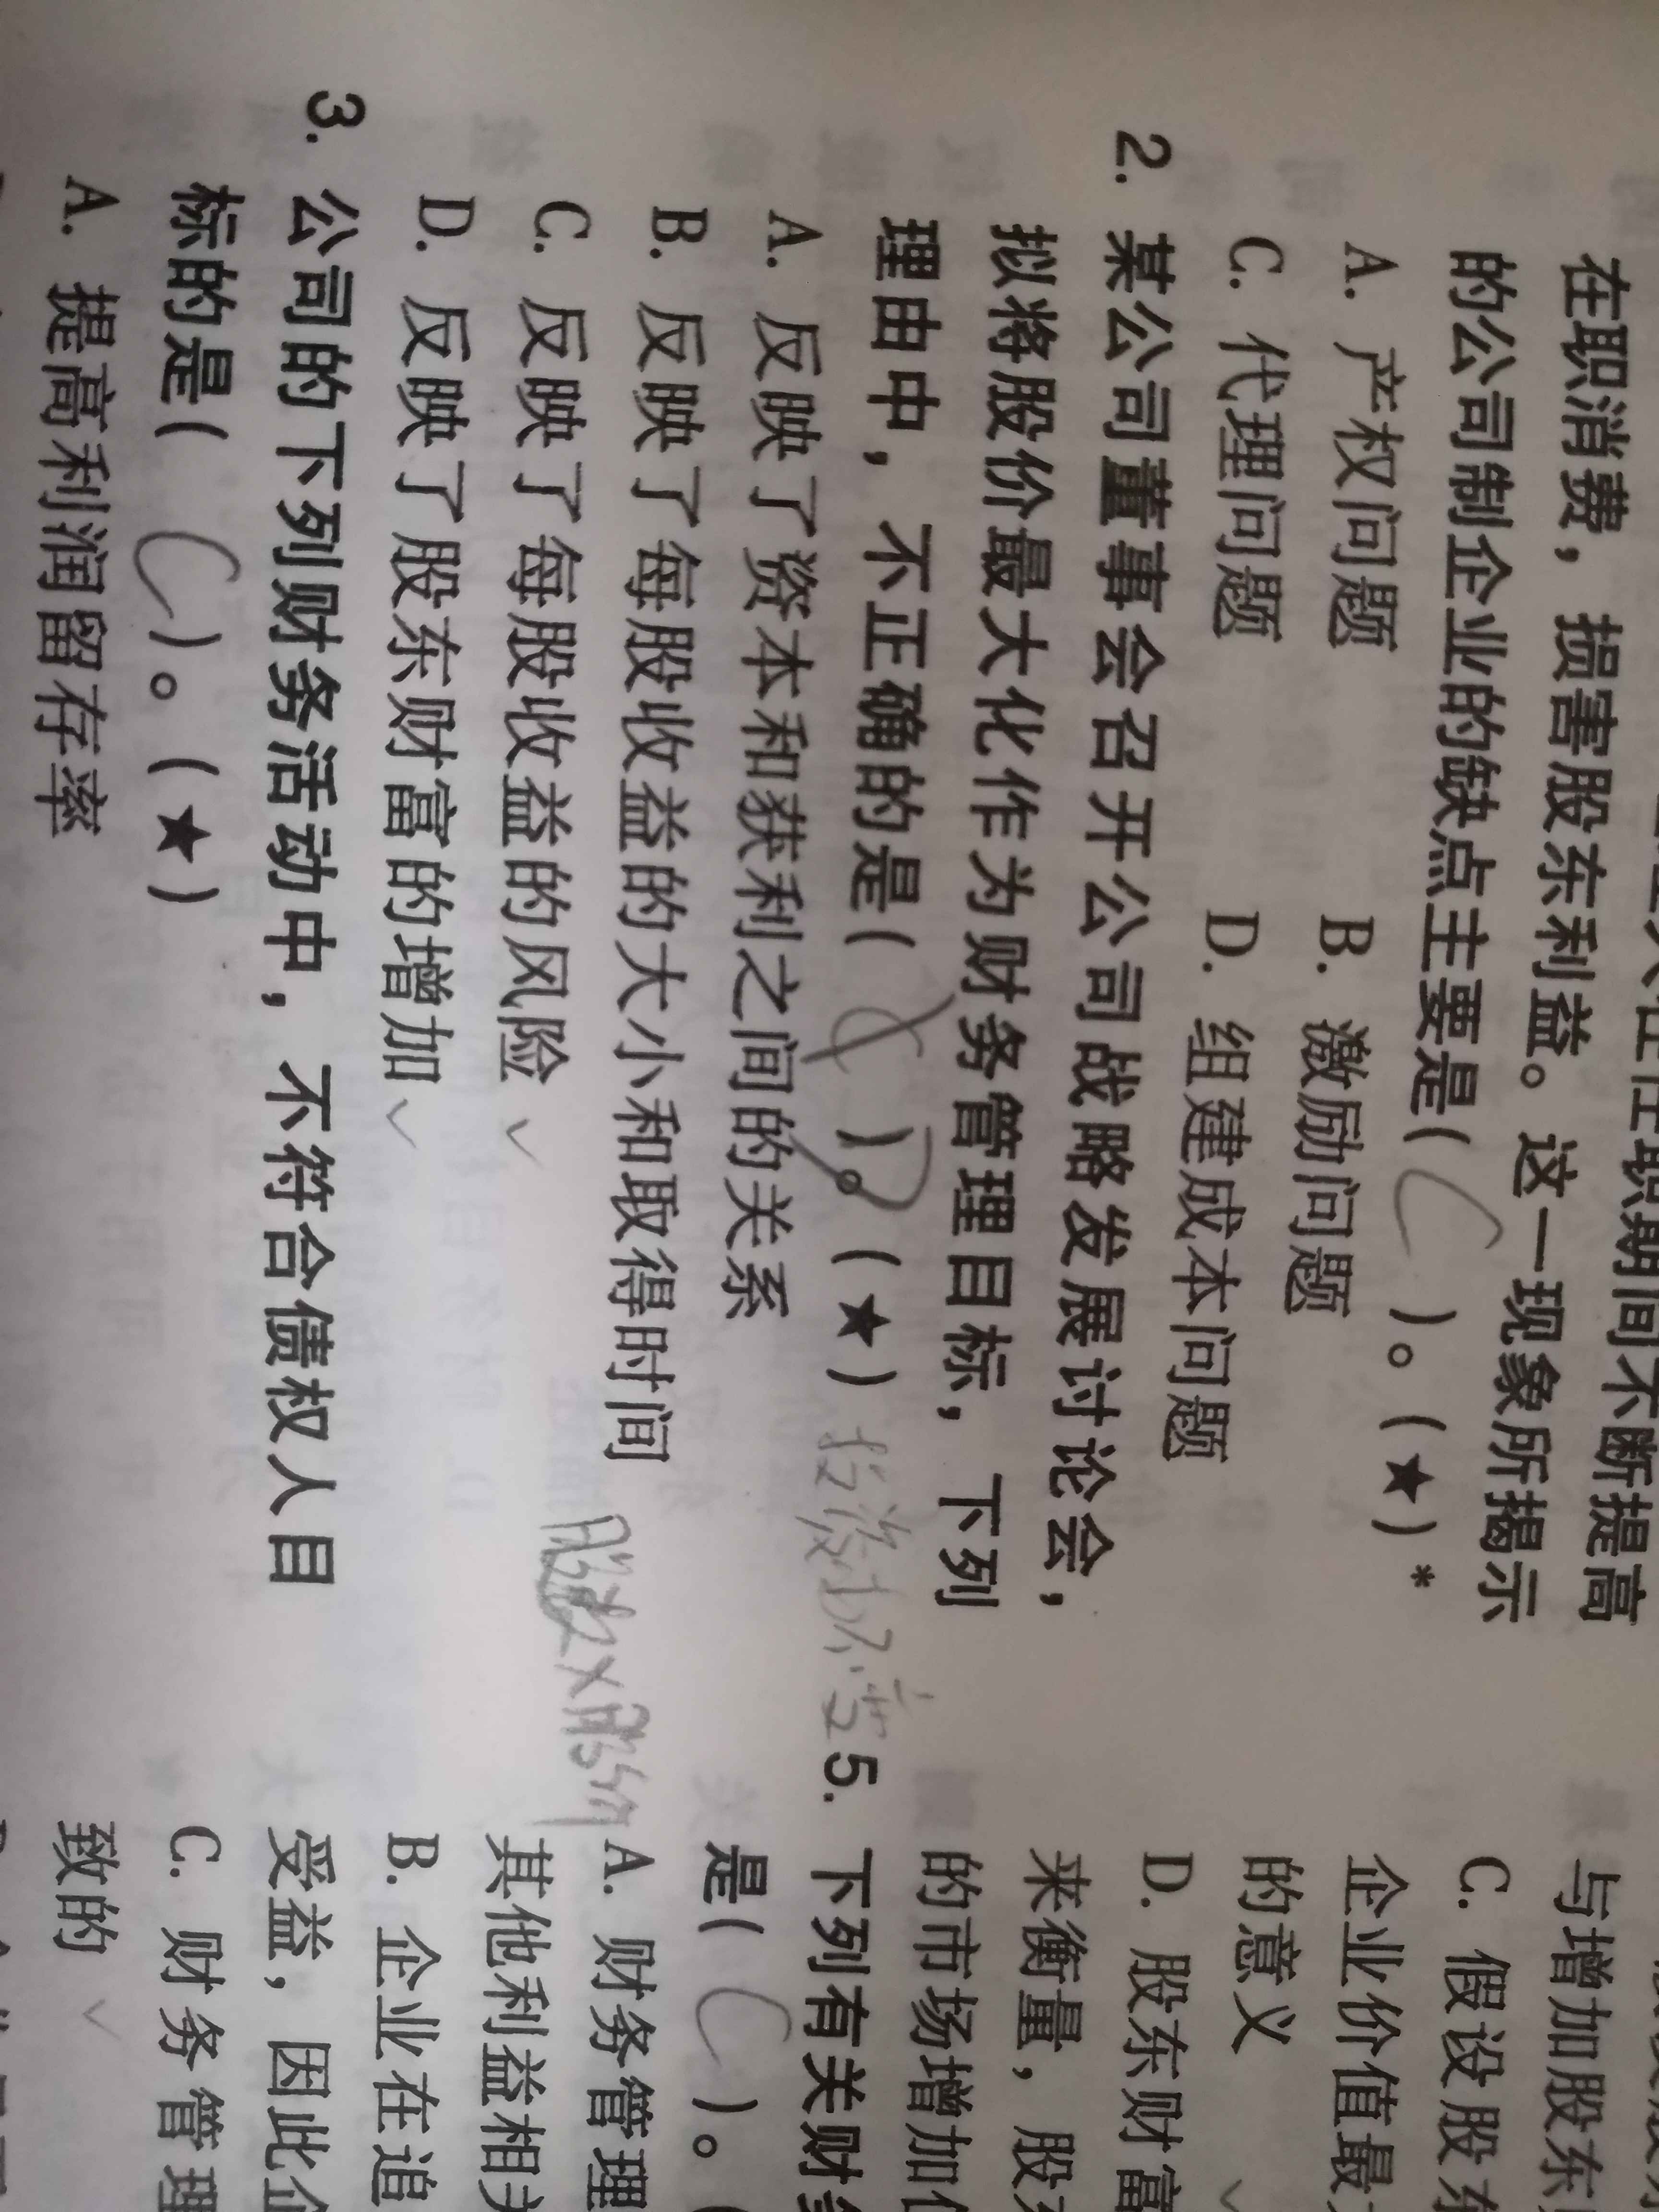 在职消费，损害股东利益。这一现象所揭示
的公司制企业的缺点主要是( C )。(★)*
A. 产权问题 B. 激励问题
C. 代理问题 D. 组建成本问题
2. 某公司董事会召开公司战略发展讨论会，
拟将股价最大化作为财务管理目标，下列
理由中，不正确的是( )。D (★)
A. 反映了资本和获利之间的关系
B. 反映了每股收益的大小和取得时间
C. 反映了每股收益的风险
D. 反映了股东财富的增加
3. 公司的下列财务活动中，不符合债权人目
标的是( C )。(★)
A. 提高利润留存率
投资额不变
与增加股东
C. 假设股东
企业价值最
的意义
D. 股东财富
来衡量，股
的市场增加
5. 下列有关财
是( C )。(
A. 财务管理
其他利益相
B. 企业在追
受益，因此企
C. 财务管理
致的